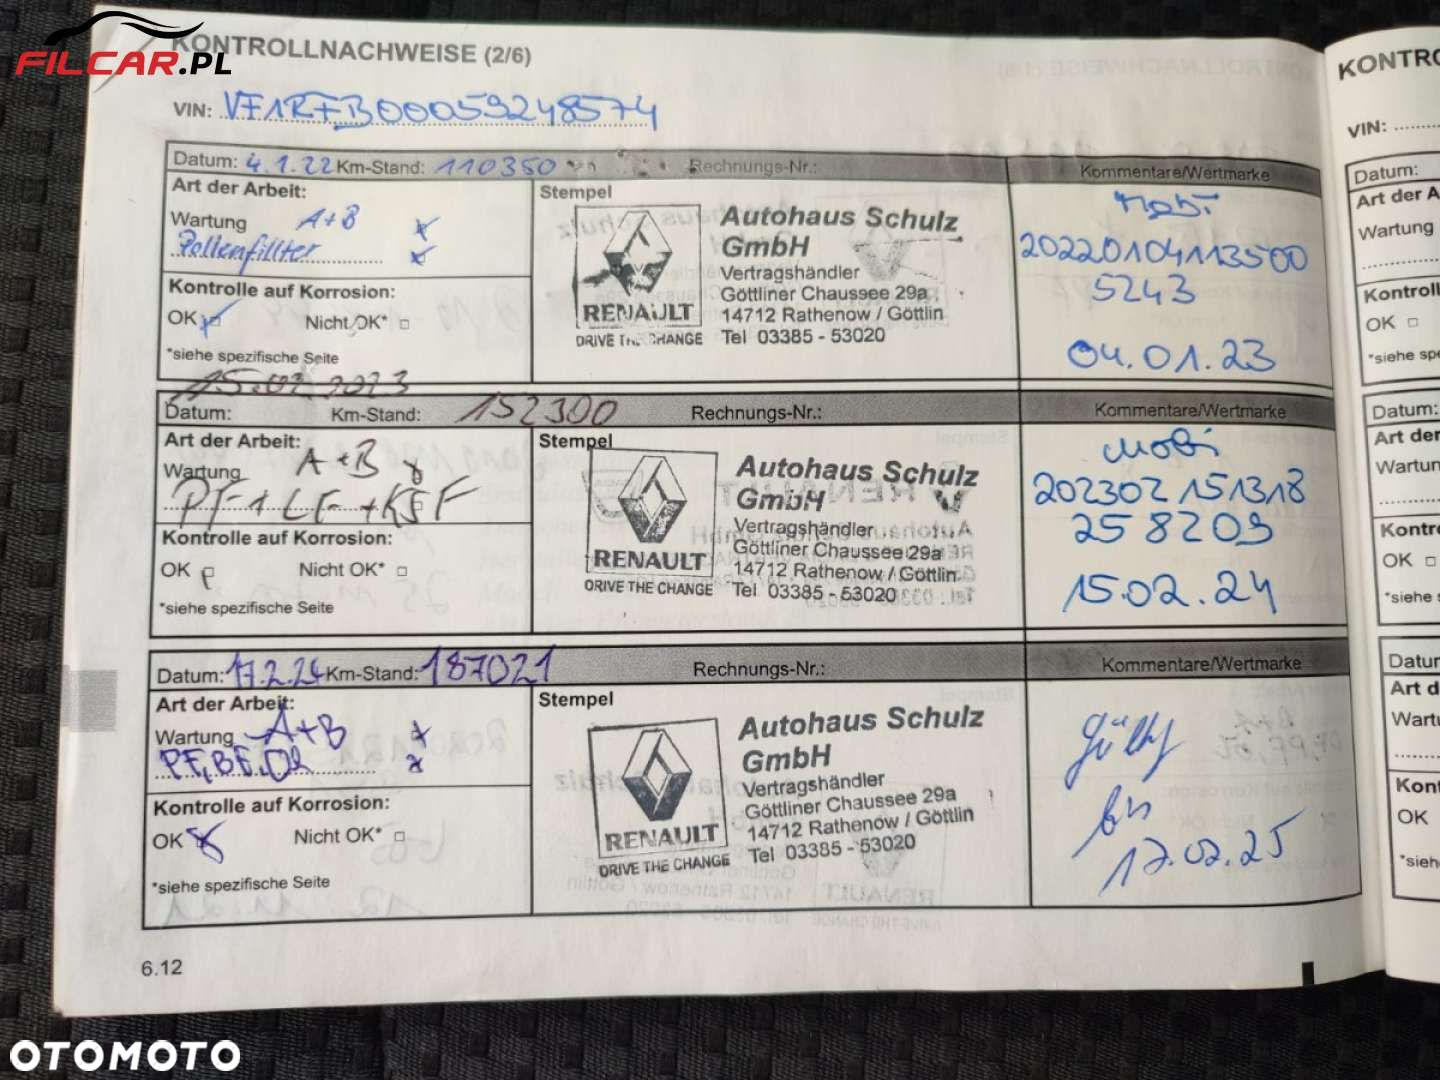 FILCAR.PL
KONTROLLNACHWEISE (2/6)
VIN: VF1RFB00059248574
Datum: 4.1.22 Km-Stand: 110350 Rechnungs-Nr.: Kommentare/Wertmarke
Art der Arbeit:
Wartung A+B
Pollenfillter
Kontrolle auf Korrosion:
OK Nicht OK*
*siehe spezifische Seite
Stempel
RENAULT
DRIVE THE CHANGE
Autohaus Schulz
GmbH
Vertragshändler
Göttliner Chaussee 29a
14712 Rathenow / Göttlin
Tel 03385 - 53020
Mobi
20220104113500
5243
04.01.23
15.02.2023
Datum: Km-Stand: 152300 Rechnungs-Nr.: Kommentare/Wertmarke
Art der Arbeit:
Wartung A+B
PF+LF+KSF
Kontrolle auf Korrosion:
OK Nicht OK*
*siehe spezifische Seite
Stempel
RENAULT
DRIVE THE CHANGE
Autohaus Schulz
GmbH
Vertragshändler
Göttliner Chaussee 29a
14712 Rathenow / Göttlin
Tel 03385 - 53020
Mobi
202302151318
258209
15.02.24
Datum: 17.2.24 Km-Stand: 187021 Rechnungs-Nr.: Kommentare/Wertmarke
Art der Arbeit:
Wartung A+B
PF, BF, Öl
Kontrolle auf Korrosion:
OK Nicht OK*
*siehe spezifische Seite
Stempel
RENAULT
DRIVE THE CHANGE
Autohaus Schulz
GmbH
Vertragshändler
Göttliner Chaussee 29a
14712 Rathenow / Göttlin
Tel 03385 - 53020
Gültig
bis
17.02.25
6.12
KONTRO
VIN:
Datum:
Art der A
Wartung
Kontroll
OK
*siehe spe
Datum:
Art der
Wartun
Kontro
OK
*siehe
Datum
Art d
Wartu
Kont
OK
*sieh
OTOMOTO